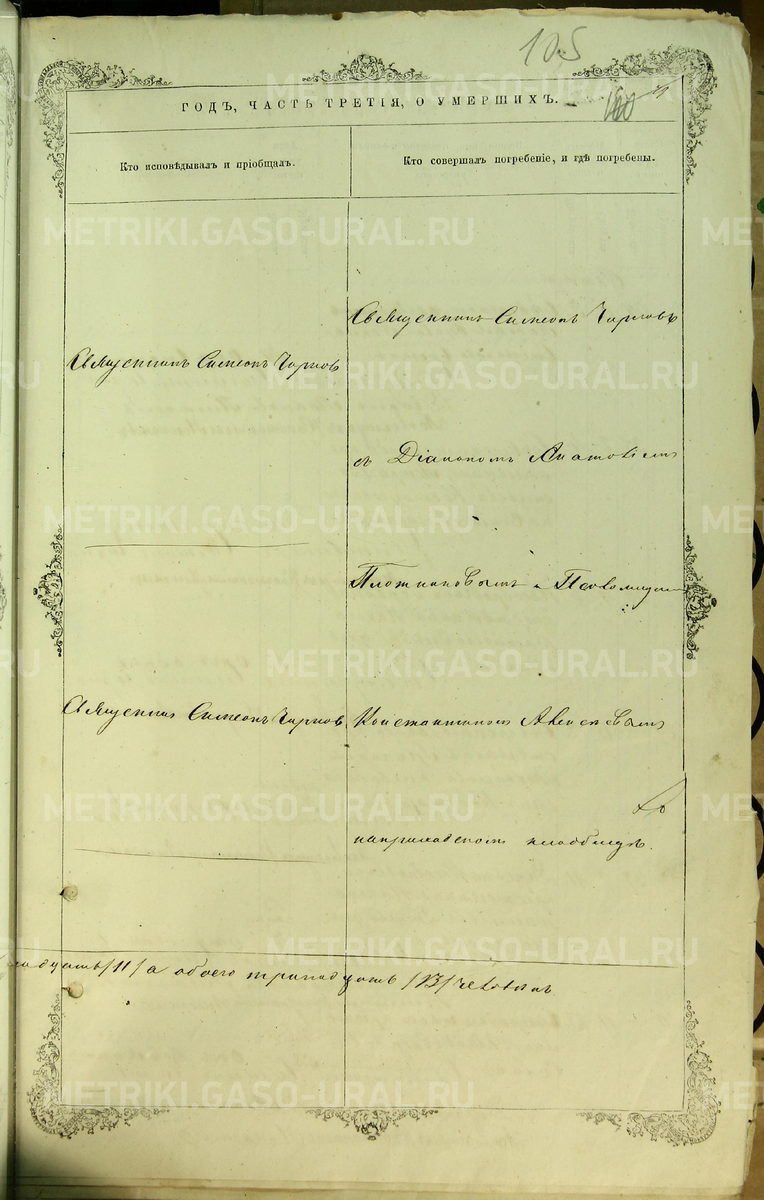 105
160
ГОДЪ, ЧАСТЬ ТРЕТІЯ, О УМЕРШИХЪ.
Кто исповѣдывалъ и пріобщалъ.
Кто совершалъ погребеніе, и гдѣ погребены.
Священникъ Симеонъ Чирковъ
Священникъ Симеонъ Чирков
съ Діакономъ
Плотниковымъ и
Священник Симеонъ Чирков
Константиномъ
наприходскомъ кладбищѣ.
/11/ а обоего тринадцать /13/ человѣкъ
METRIKI.GASO-URAL.RU